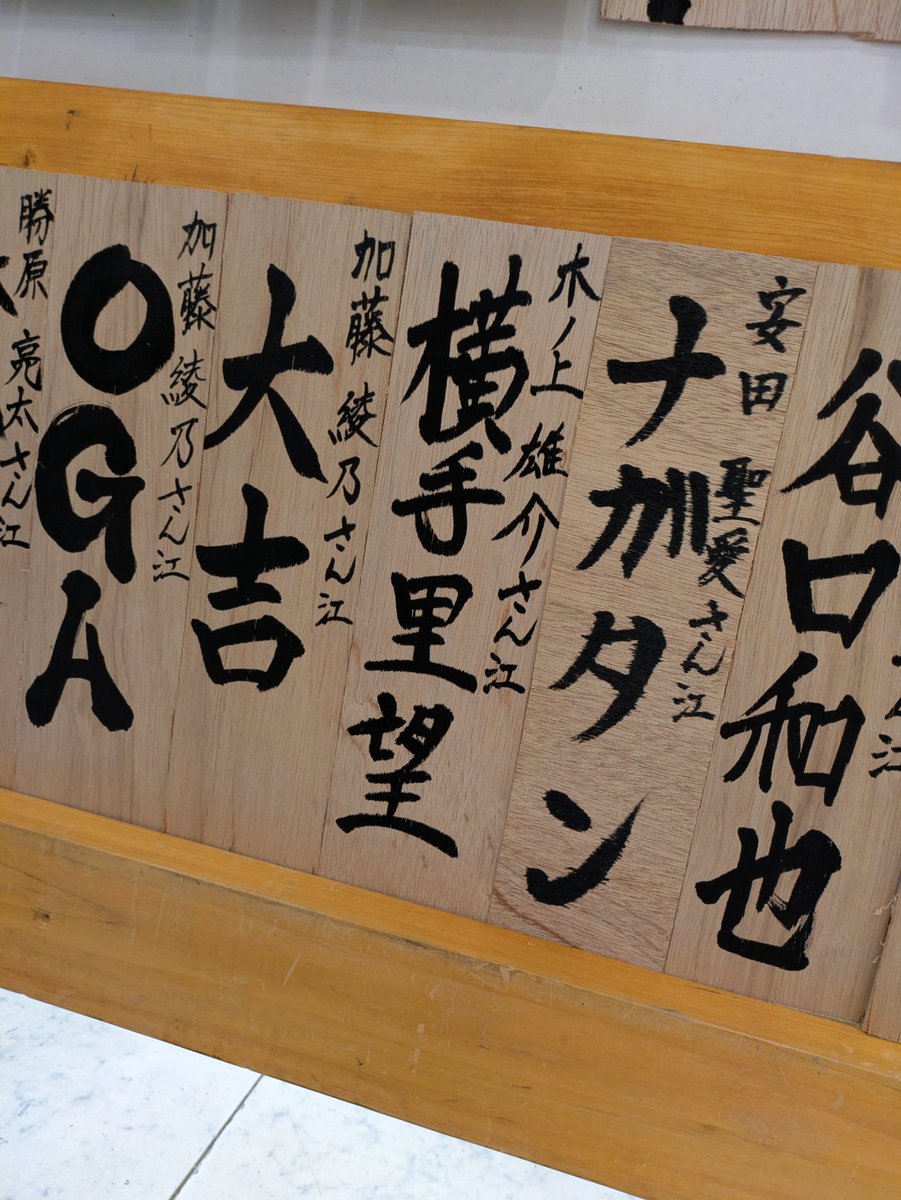 谷口和也
安田 聖愛さん江
ナ加タン
木ノ上 雄介さん江
横手里望
加藤 綾乃さん江
大吉
加藤 綾乃さん江
OGA
勝原 亮太さん江